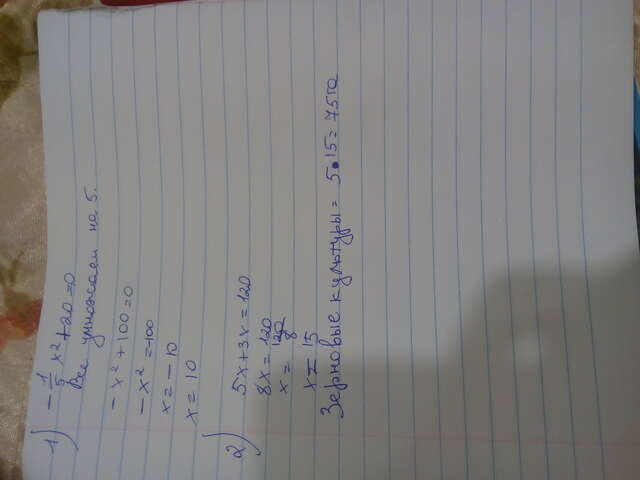 1) -1/5 x² + 20 = 0
Все умножаем на 5.
-x² + 100 = 0
-x² = -100
x = -10
x = 10
2) 5x + 3x = 120
8x = 120
x = 120/8
x = 15
Зерновые культуры = 5•15 = 75га